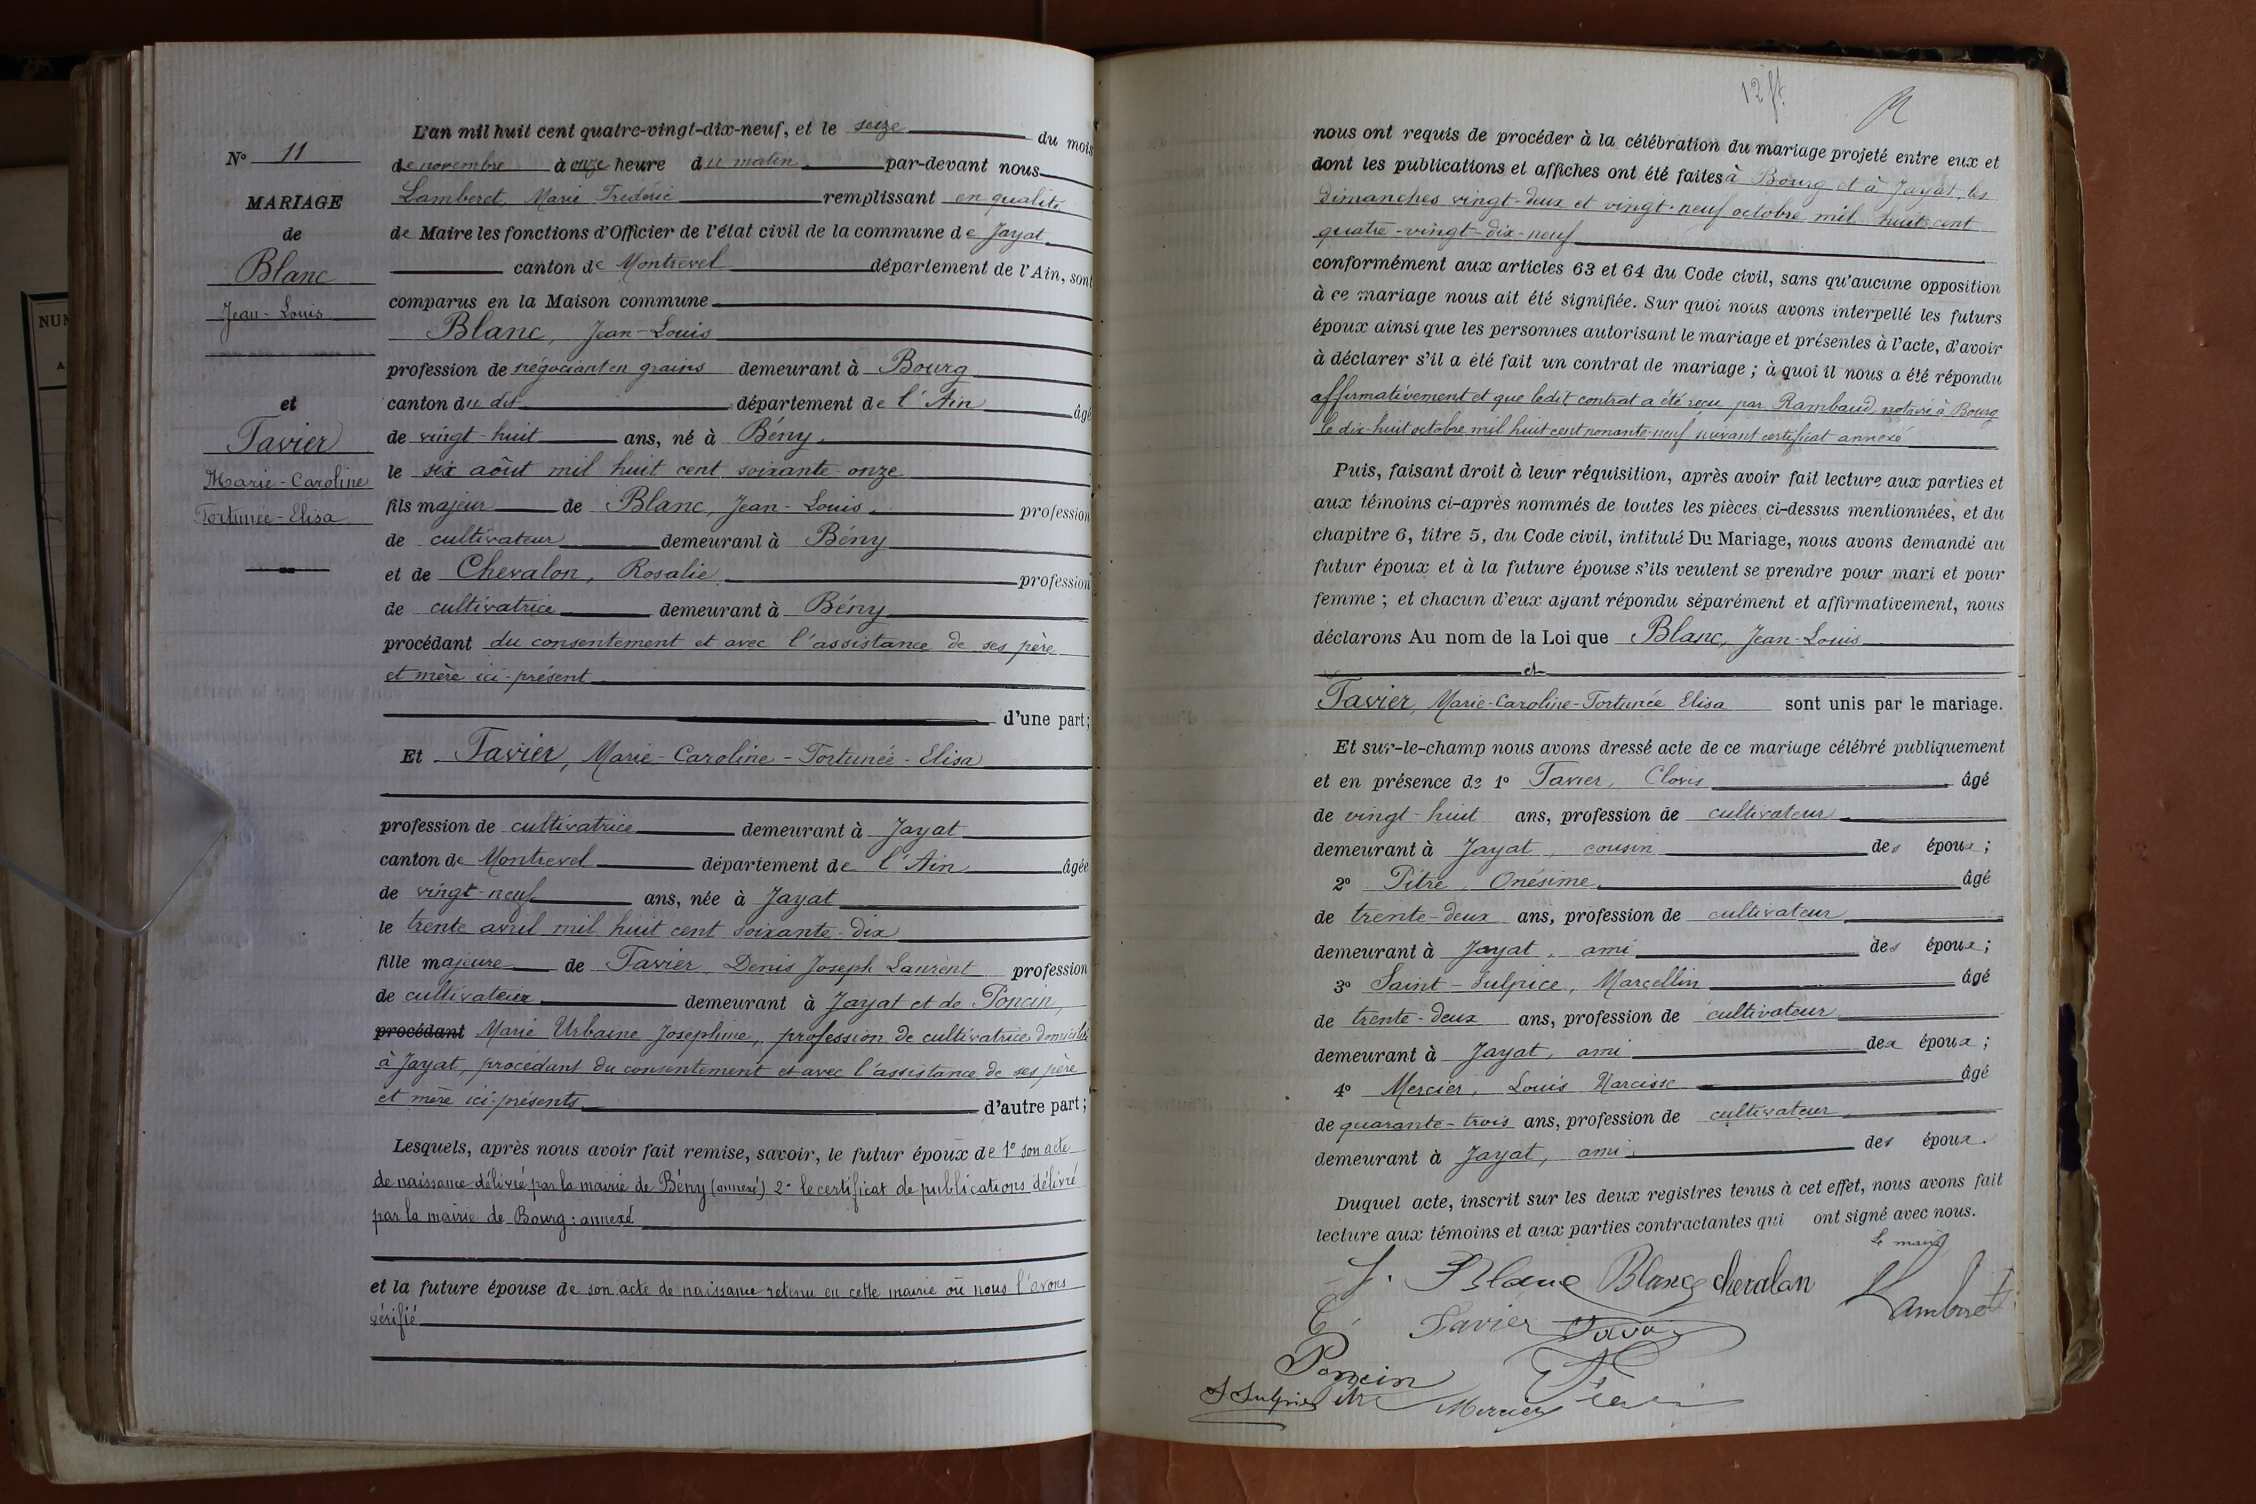 N° 11
MARIAGE
de
Blanc
Jean-Louis
et
Favier
Marie-Caroline
Fortunée-Elisa
L'an mil huit cent quatre-vingt-dix-neuf, et le seize du mois
de novembre à onze heure du matin par-devant nous
Lamberet, Marie Frédéric remplissant en qualité
de Maire les fonctions d'Officier de l'état civil de la commune de Jayat
canton de Montrevel département de l'Ain, sont
comparus en la Maison commune
Blanc, Jean-Louis
profession de négociant en grains demeurant à Bourg
canton du dit département de l'Ain âgé
de vingt-huit ans, né à Bény
le six août mil huit cent soixante-onze
fils majeur de Blanc, Jean-Louis profession
de cultivateur demeurant à Bény
et de Chevalon, Rosalie profession
de cultivatrice demeurant à Bény
procédant du consentement et avec l'assistance de ses père
et mère ici-présent
d'une part;
Et Favier, Marie-Caroline-Fortunée-Elisa
profession de cultivatrice demeurant à Jayat
canton de Montrevel département de l'Ain âgée
de vingt-neuf ans, née à Jayat
le trente avril mil huit cent soixante-dix
fille majeure de Favier Denis Joseph Laurent profession
de cultivateur demeurant à Jayat et de Poncin,
procédant Marie Urbaine Josephine, profession de cultivatrice domiciliée
à Jayat, procédant du consentement et avec l'assistance de ses père
et mère ici-présents d'autre part;
Lesquels, après nous avoir fait remise, savoir, le futur époux de 1° son acte
de naissance délivré par la mairie de Bény (annexé) 2° le certificat de publications délivré
par la mairie de Bourg: annexé
et la future épouse de son acte de naissance retenu en cette mairie où nous l'avons
vérifié
12 ft
nous ont requis de procéder à la célébration du mariage projeté entre eux et
dont les publications et affiches ont été faites à Bourg et à Jayat les
dimanches vingt-deux et vingt-neuf octobre mil huit cent
quatre-vingt-dix-neuf
conformément aux articles 63 et 64 du Code civil, sans qu'aucune opposition
à ce mariage nous ait été signifiée. Sur quoi nous avons interpellé les futurs
époux ainsi que les personnes autorisant le mariage et présentes à l'acte, d'avoir
à déclarer s'il a été fait un contrat de mariage; à quoi il nous a été répondu
affirmativement et que ledit contrat a été reçu par Rambaud notaire à Bourg
le dix-huit octobre mil huit cent nonante-neuf suivant certificat annexé
Puis, faisant droit à leur réquisition, après avoir fait lecture aux parties et
aux témoins ci-après nommés de toutes les pièces ci-dessus mentionnées, et du
chapitre 6, titre 5, du Code civil, intitulé Du Mariage, nous avons demandé au
futur époux et à la future épouse s'ils veulent se prendre pour mari et pour
femme; et chacun d'eux ayant répondu séparément et affirmativement, nous
déclarons Au nom de la Loi que Blanc, Jean-Louis
et
Favier, Marie-Caroline-Fortunée Elisa sont unis par le mariage.
Et sur-le-champ nous avons dressé acte de ce mariage célébré publiquement
et en présence de 1° Favier, Clovis âgé
de vingt-huit ans, profession de cultivateur
demeurant à Jayat, cousin des époux;
2° Pitre, Onésime âgé
de trente-deux ans, profession de cultivateur
demeurant à Jayat, ami des époux;
3° Saint-Sulpice, Marcellin âgé
de trente-deux ans, profession de cultivateur
demeurant à Jayat, ami des époux;
4° Mercier, Louis Narcisse âgé
de quarante-trois ans, profession de cultivateur
demeurant à Jayat, ami des époux.
Duquel acte, inscrit sur les deux registres tenus à cet effet, nous avons fait
lecture aux témoins et aux parties contractantes qui ont signé avec nous.
Le maire
J. Blanc Blanc Chevalon Lamberet
E. Favier
Poncin
S Sulpice Pitre Mercier